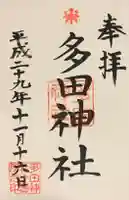 奉拝
多田神社
平成二十九年十一月十六日